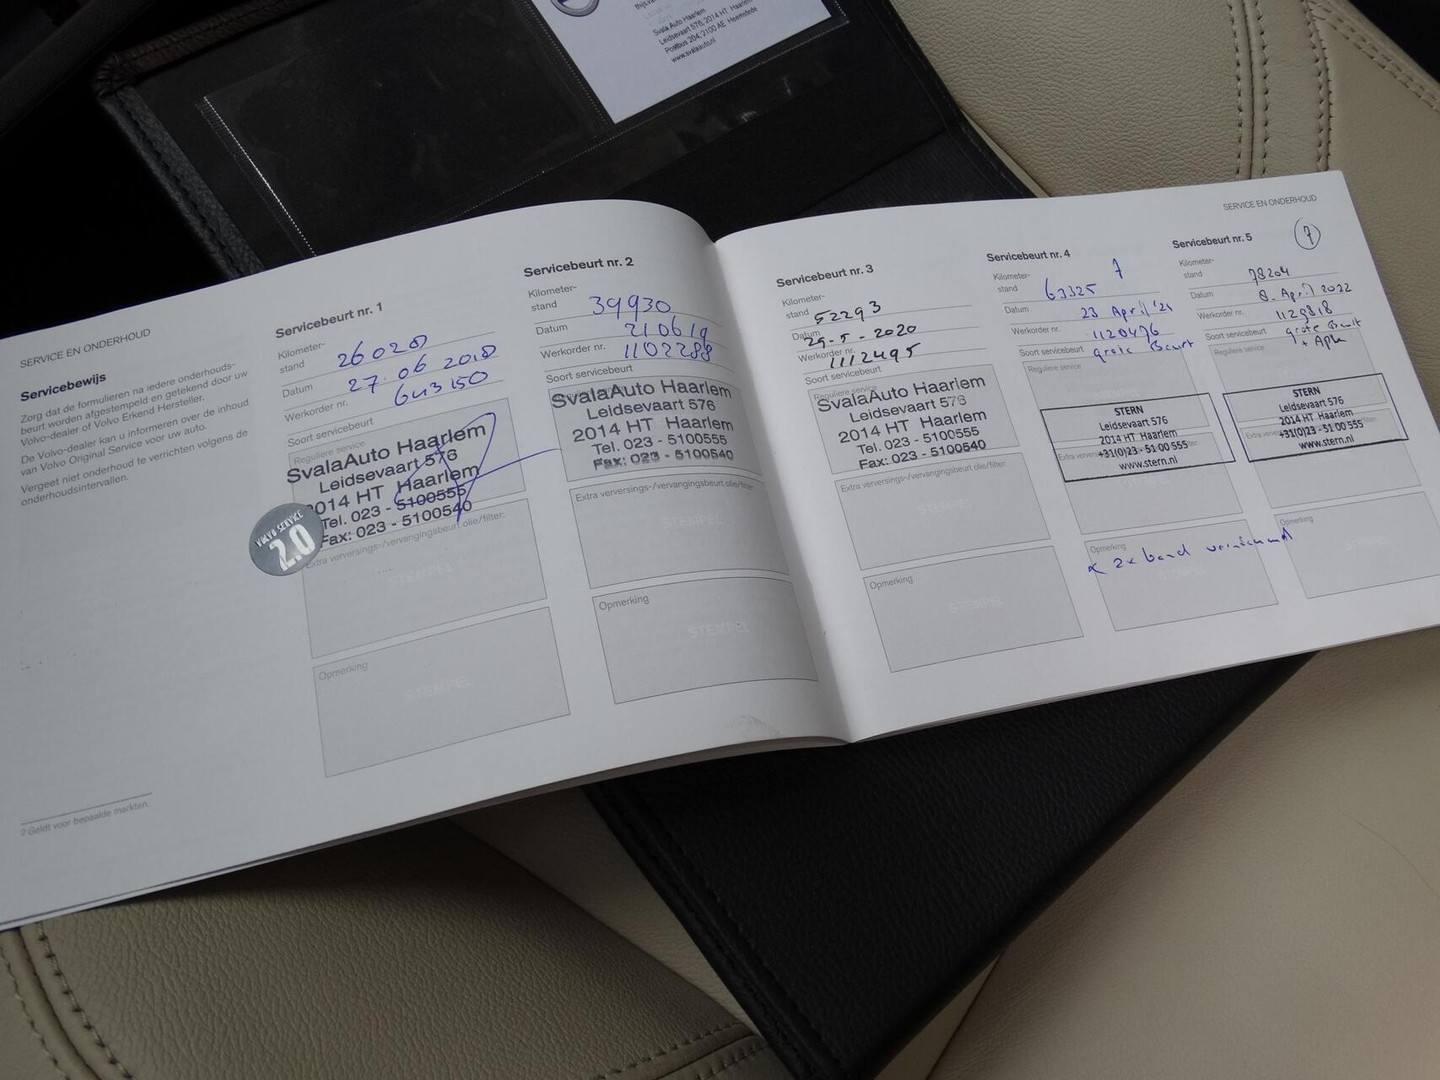 Svala Auto Haarlem
Leidsevaart 576, 2014 HT Haarlem
Postbus 204, 2100 AE Heemstede
www.svalaauto.nl
SERVICE EN ONDERHOUD
Servicebewijs
Zorg dat de formulieren na iedere onderhouds-
beurt worden afgestempeld en getekend door uw
Volvo-dealer of Volvo Erkend Hersteller.
De Volvo-dealer kan u informeren over de inhoud
van Volvo Original Service voor uw auto.
Vergeet niet onderhoud te verrichten volgens de
onderhoudsintervallen.
2 Geldt voor bepaalde markten.
Servicebeurt nr. 1
Kilometer-
stand 26020
Datum 27.06 2018
Werkorder nr. 643150
Soort servicebeurt
Reguliere service
SvalaAuto Haarlem
Leidsevaart 576
2014 HT Haarlem
Tel. 023 - 5100555
Fax: 023 - 5100540
VOLVO SERVICE
2.0
Extra verversings-/vervangingsbeurt olie/filter:
STEMPEL
Opmerking
STEMPEL
Servicebeurt nr. 2
Kilometer-
stand 39930
Datum 210619
Werkorder nr. 1102288
Soort servicebeurt
SvalaAuto Haarlem
Leidsevaart 576
2014 HT Haarlem
Tel. 023 - 5100555
Fax: 023 - 5100540
Extra verversings-/vervangingsbeurt olie/filter
STEMPEL
Opmerking
STEMPEL
SERVICE EN ONDERHOUD
Servicebeurt nr. 3
Kilometer-
stand 52293
Datum 29-5-2020
Werkorder nr. 1112495
Soort servicebeurt
Reguliere service
SvalaAuto Haarlem
Leidsevaart 576
2014 HT Haarlem
Tel. 023 - 5100555
Fax: 023 - 5100540
Extra verversings-/vervangingsbeurt olie/filter:
STEMPEL
Opmerking
STEMPEL
Servicebeurt nr. 4
Kilometer-
stand 63325
Datum 23 April '21
Werkorder nr. 1120476
Soort servicebeurt grote Beurt
Reguliere service
STERN
Leidsevaart 576
2014 HT Haarlem
+31(0)23 - 51 00 555
www.stern.nl
Opmerking
2x band
STEMPEL
Servicebeurt nr. 5
Kilometer-
stand 78204
Datum 8. April 2022
Werkorder nr. 1129818
Soort servicebeurt grote Beurt
+ Apk
Reguliere service
STERN
Leidsevaart 576
2014 HT Haarlem
+31(0)23 - 51 00 555
www.stern.nl
Opmerking